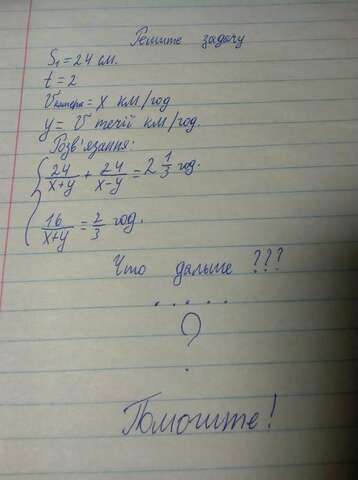 Решите задачу
S₁ = 24 см.
t = 2
Vкатера = x км/год
y = V течії км/год.
Розв'язання:
24/x+y + 24/x-y = 2 1/3 год.
16/x+y = 2/3 год.
Что дальше ???
.....
?
Помогите!